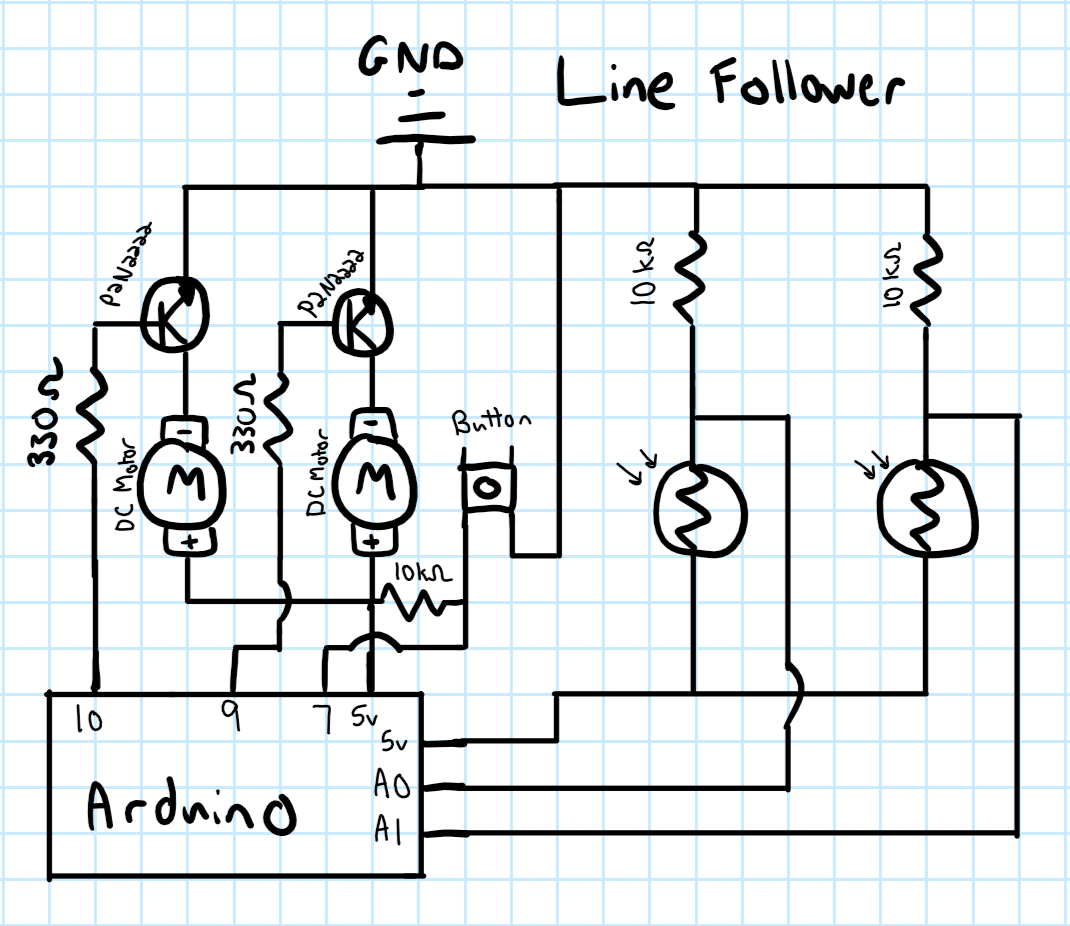 GND
Line Follower
P2N2222
P2N2222
10kΩ
10kΩ
330Ω
330Ω
Button
-
-
DC Motor
M
DC Motor
M
+
+
10kΩ
10
9
7
5v
5v
A0
A1
Arduino